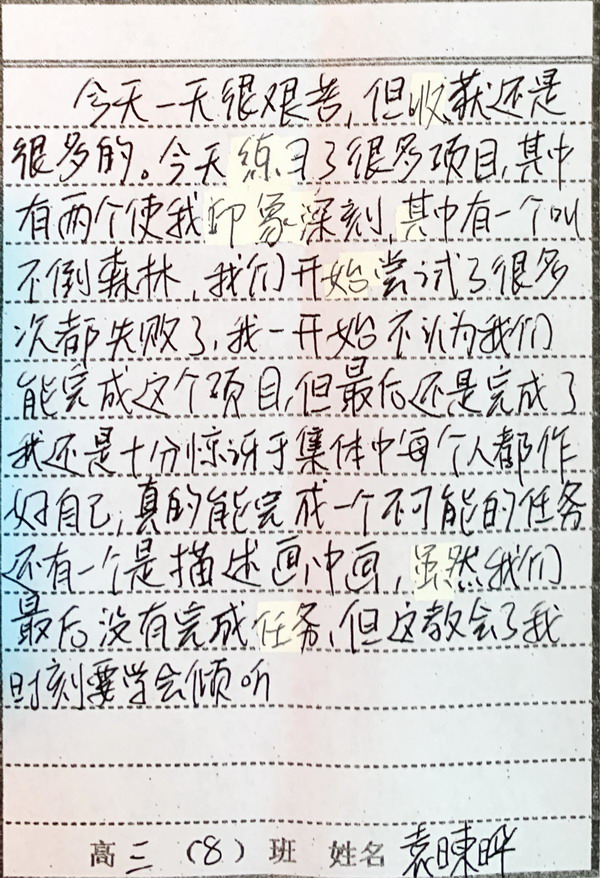 今天一天很艰苦,但收获还是
很多的。今天练习了很多项目,其中
有两个使我印象深刻,其中有一个叫
不倒森林,我们开始尝试了很多
次都失败了,我一开始不认为我们
能完成这个项目,但最后还是完成了
我还是十分惊讶于集体中每个人都作
好自己,真的能完成一个不可能的任务
还有一个是描述画中画,虽然我们
最后没有完成任务,但这教会了我
时刻要学会倾听
高三(8)班 姓名 袁暕晔